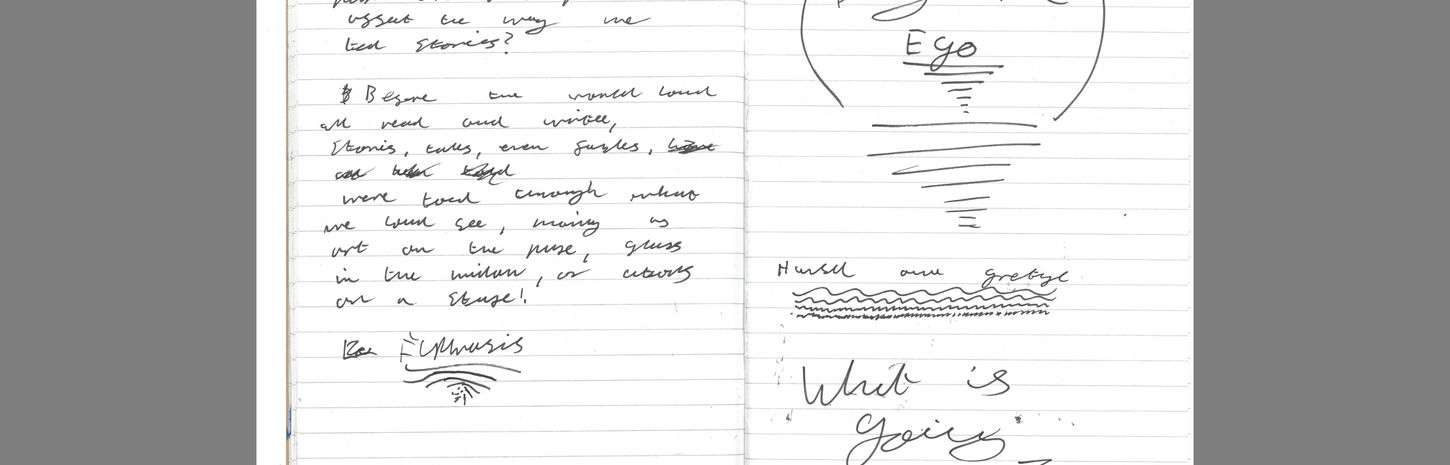 affect the way we
tell stories?
Before the world could
all read and write,
stories, tales, even fables,
were told through what
we could see, mainly as
art on the page, glass
in the window, or actors
on a stage!
Ekphrasis
Ego
Hansel and gretyl
What is
going